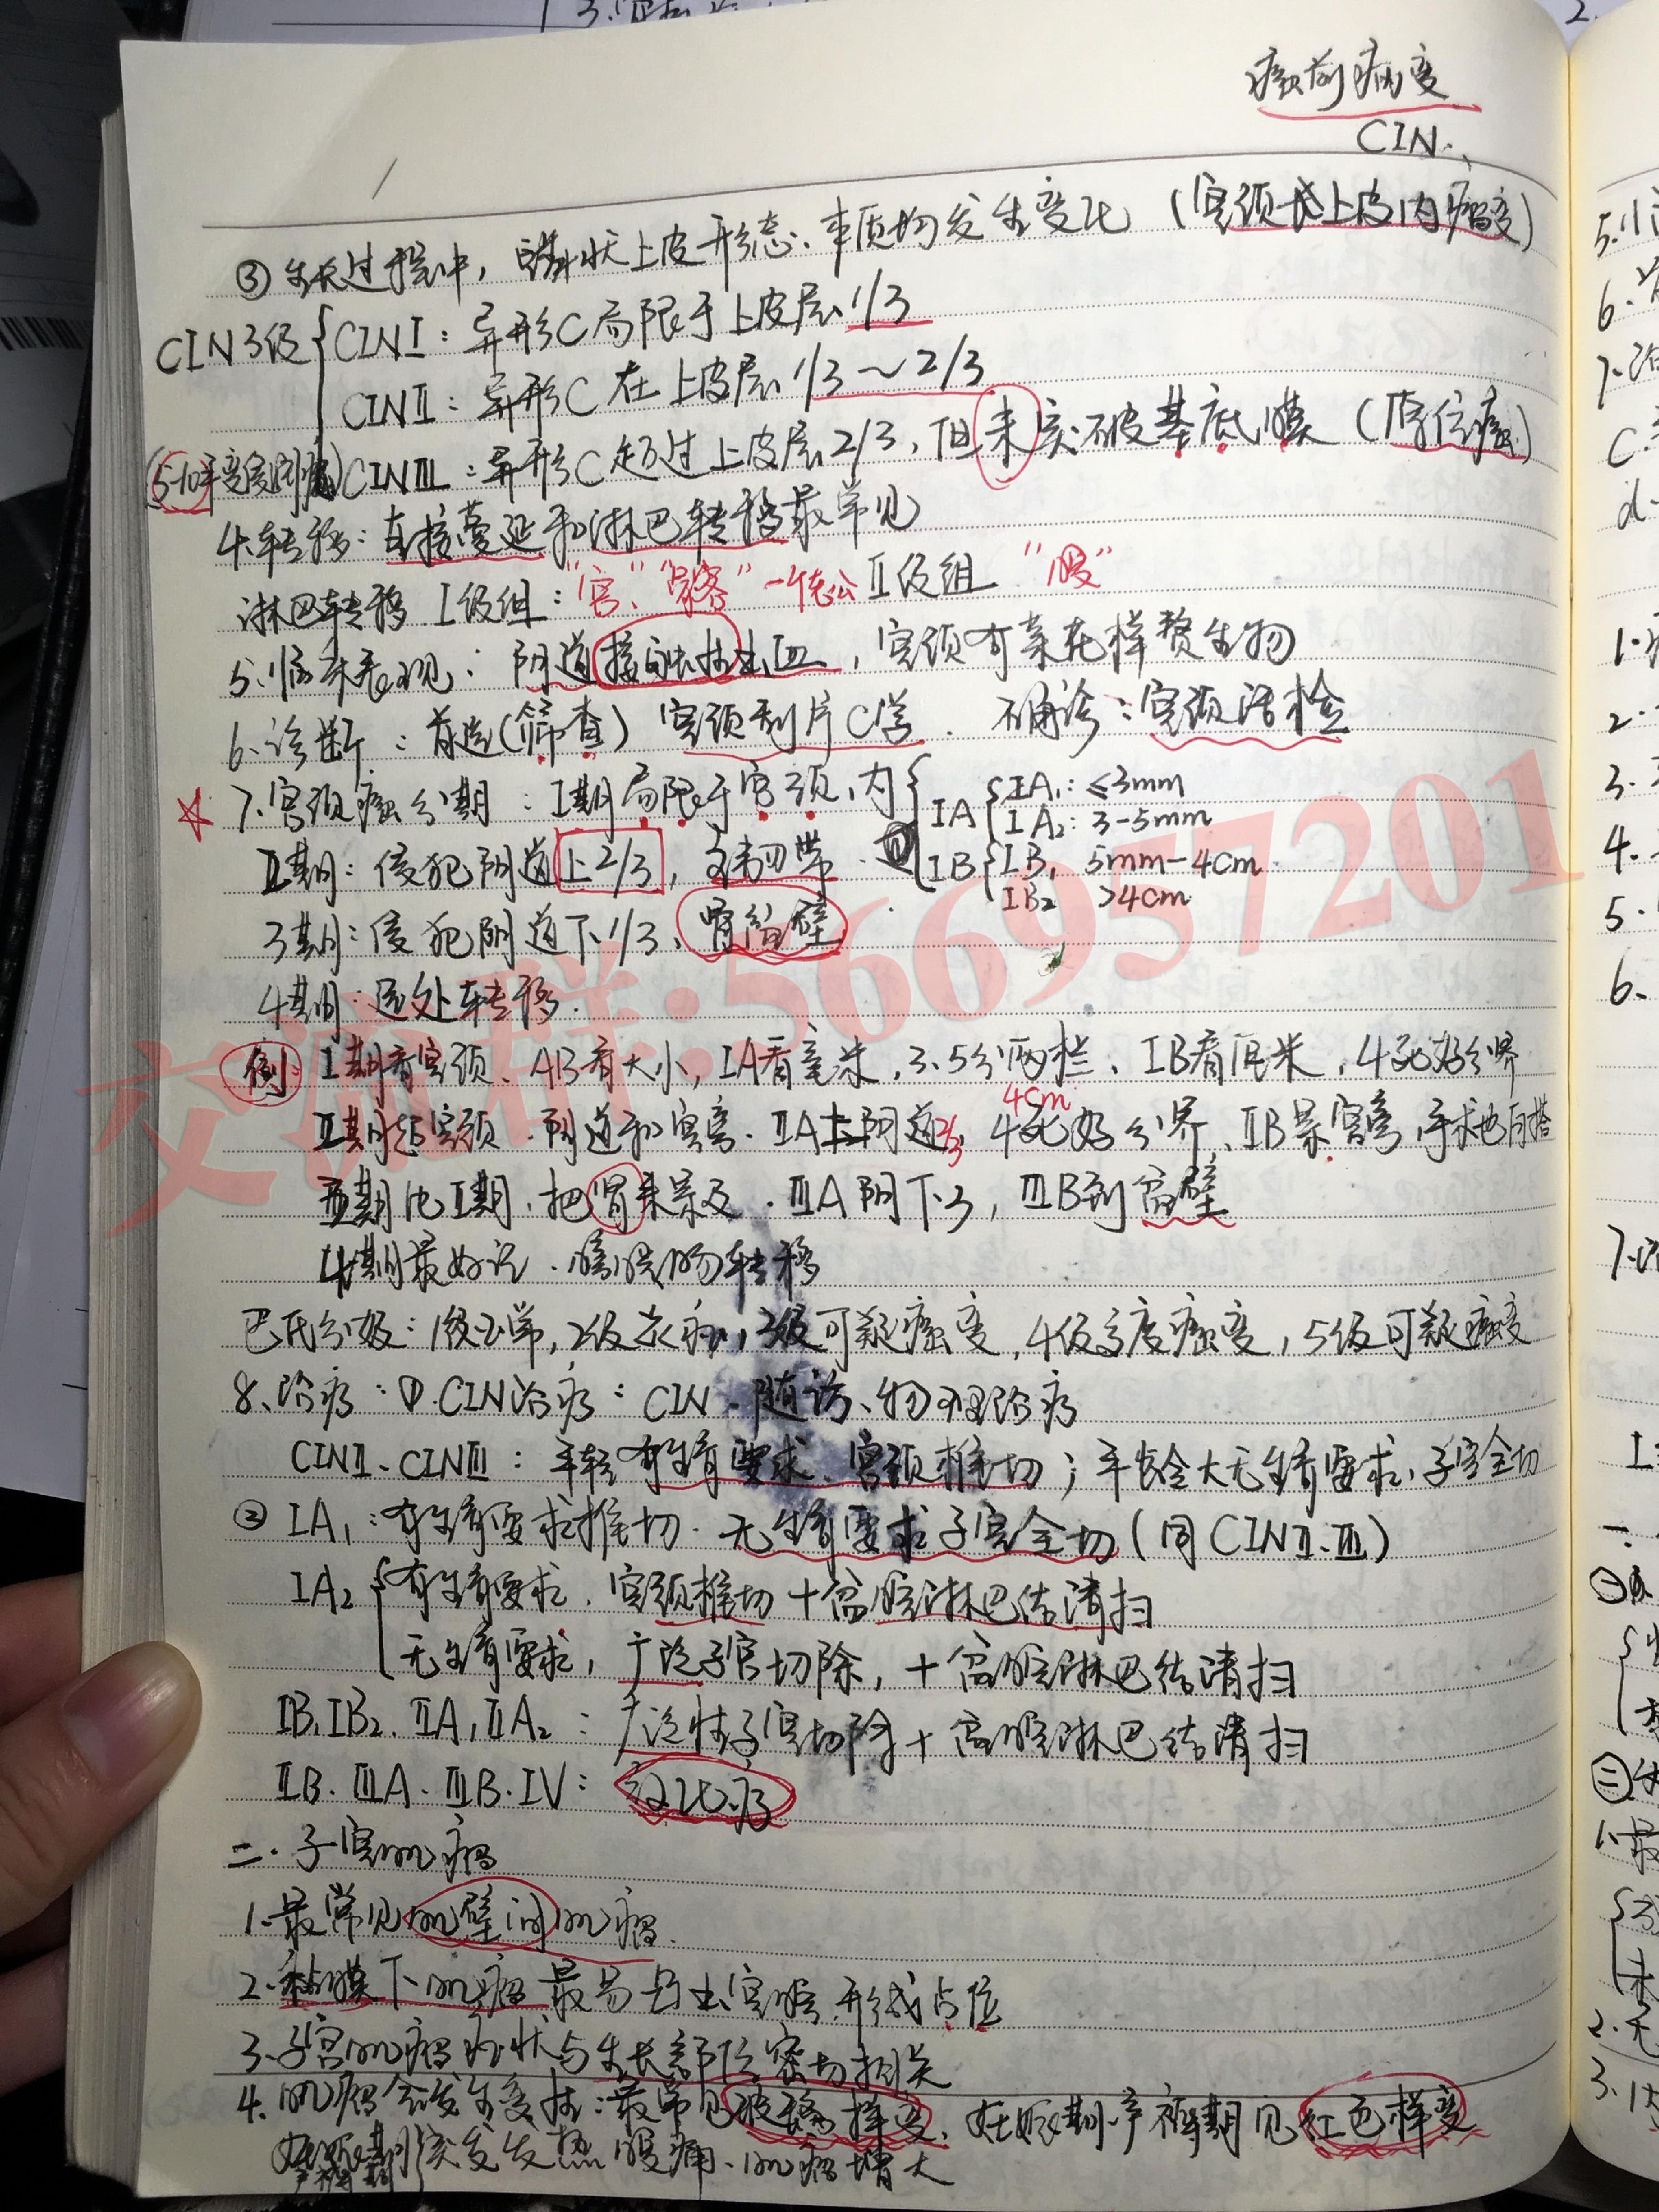 癌前病变
CIN
③ 生长过程中，鳞状上皮形态、本质均发生变化（宫颈上皮内瘤变）
CIN3级 CINⅠ：异形C局限于上皮层1/3
CINⅡ：异形C在上皮层1/3～2/3
(5-10年变 CINⅢ：异形C超过上皮层2/3，但未突破基底膜（原位癌）
4.转移：直接蔓延和淋巴转移最常见
淋巴转移 Ⅰ级组：“宫”、“髂” 一个老公 Ⅱ级组 “腹”
5.临床表现：阴道接触性出血，宫颈有菜花样赘生物
6.诊断：首选（筛查）宫颈刮片C学．确诊：宫颈活检
☆ 7.宫颈癌分期：Ⅰ期局限于宫颈，内 ⅠA ⅠA₁：≤3mm
ⅠA₂：3-5mm
Ⅱ期：侵犯阴道上2/3，宫 ⅠB ⅠB₁ 5mm-4cm
ⅠB₂ >4cm
3期：侵犯阴道下1/3、肾盆壁
4期：远处转移．
例 Ⅰ期看宫颈、AB看大小，ⅠA看毫米，3.5分两栏、ⅠB看厘米，4死好分界
Ⅱ期超宫颈．阴道和宫旁．ⅡA上阴道2/3，4死好分界、ⅡB累宫旁，手术也白搭
4cm
Ⅲ期比Ⅱ期，把肾来累及．ⅢA阴下3，ⅢB到盆壁
4期最好记．膀胱肠转移
巴氏分级：1级正常，2级炎症，3级可疑癌变，4级高度癌变，5级可疑癌变
8、治疗：①．CIN治疗：CIN 随访、物理治疗
CINⅡ、CINⅢ：年轻有生育要求、宫颈椎切；年龄大无生育要求，子宫全切
② ⅠA₁：有生育要求椎切．无生育要求子宫全切（同CINⅡ、Ⅲ）
ⅠA₂ 有生育要求．宫颈椎切＋盆腔淋巴结清扫
无生育要求，广泛子宫切除，＋盆腔淋巴结清扫
ⅠB₁ⅠB₂．ⅡA₁ⅡA₂：广泛性子宫切除＋盆腔淋巴结清扫
ⅡB．ⅢA．ⅢB．Ⅳ：放化疗
二．子宫m瘤
1.最常见m壁间m瘤．
2.粘膜下m瘤最易凸出宫腔形成占位
3.子宫m瘤症状与生长部位密切相关
4.m瘤会发生变性：最常见玻璃样变，妊娠期．产褥期见红色样变
妊娠期 突发发热腹痛、m瘤增大
产褥期
交流群:566957201